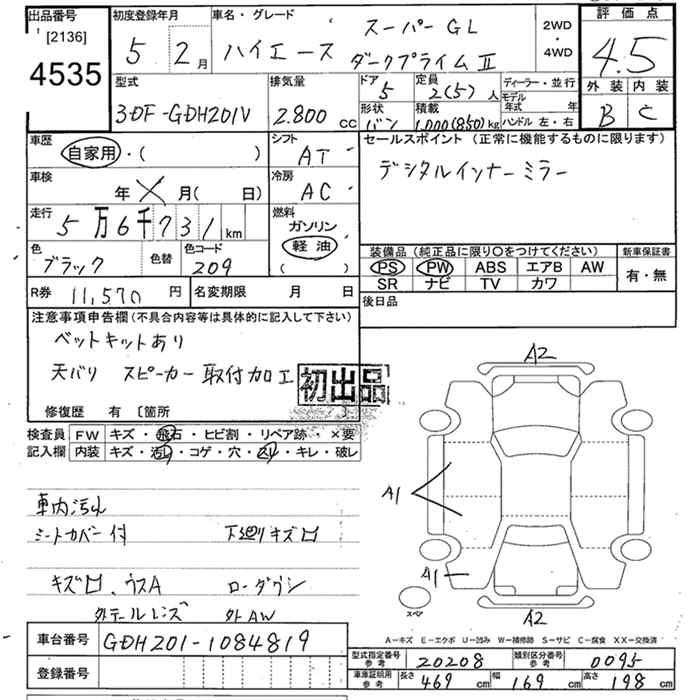 出品番号
[2136]
4535
初度登録年月
5 2月
車名・グレード
ハイエース
スーパーGL
ダークプライムⅡ
2WD
・
4WD
評価点
4.5
外装 内装
B C
型式
3DF-GDH201V
排気量
2.800 cc
ドア
5
形状
バン
定員
2(5)人
積載
1,000(850)kg
ディーラー・並行
モデル年式 年
ハンドル 左・右
車歴
自家用・( )
シフト
AT
車検
年 月( 日)
冷房
AC
走行
5万6千731km
燃料
ガソリン
軽油
( )
色
ブラック
色替
色コード
209
R券 11,570円
名変期限 月 日
セールスポイント(正常に機能するものに限ります)
デジタルインナーミラー
装備品(純正品に限り○をつけてください)
PS PW ABS エアB AW
SR ナビ TV カワ
新車保証書
有・無
後日品
注意事項申告欄(不具合内容等は具体的に記入して下さい)
ベットキットあり
天バリ スピーカー取付加工
初出品
修復歴 有 [箇所 ]
検査員記入欄
FW キズ・飛石・ヒビ割・リペア跡・×要
内装 キズ・汚れ・コゲ・穴・スレ・キレ・破レ
車内汚れ
シートカバー付 下廻りキズロ
キズロ、ウスA ローダウン
外テールレンズ 外AW
A2
A1
A1
スペア
A2
A-キズ E-エクボ U-凹み W-補修跡 S-サビ C-腐食 XX-交換済
車台番号 GDH201-1084819
登録番号
型式指定番号参考 20208
類別区分番号参考 0095
車庫証明用参考 長さ 469cm 幅 169cm 高さ 198cm